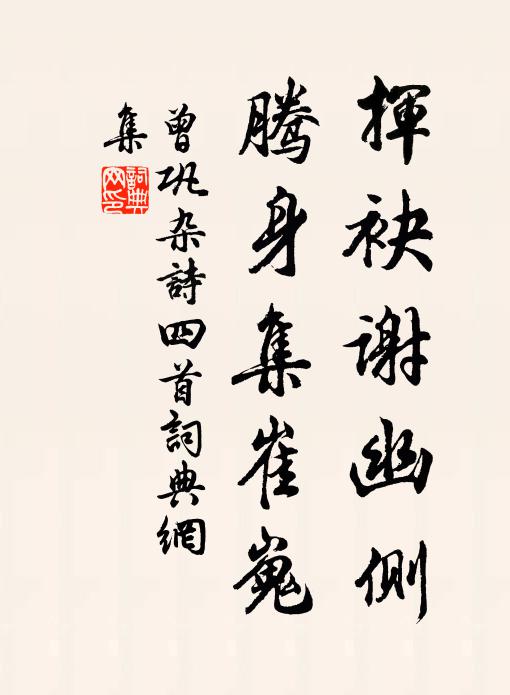 揮袂謝幽側
騰身集崔嵬
曾巩杂詩四首詞典網
集
詞典网印